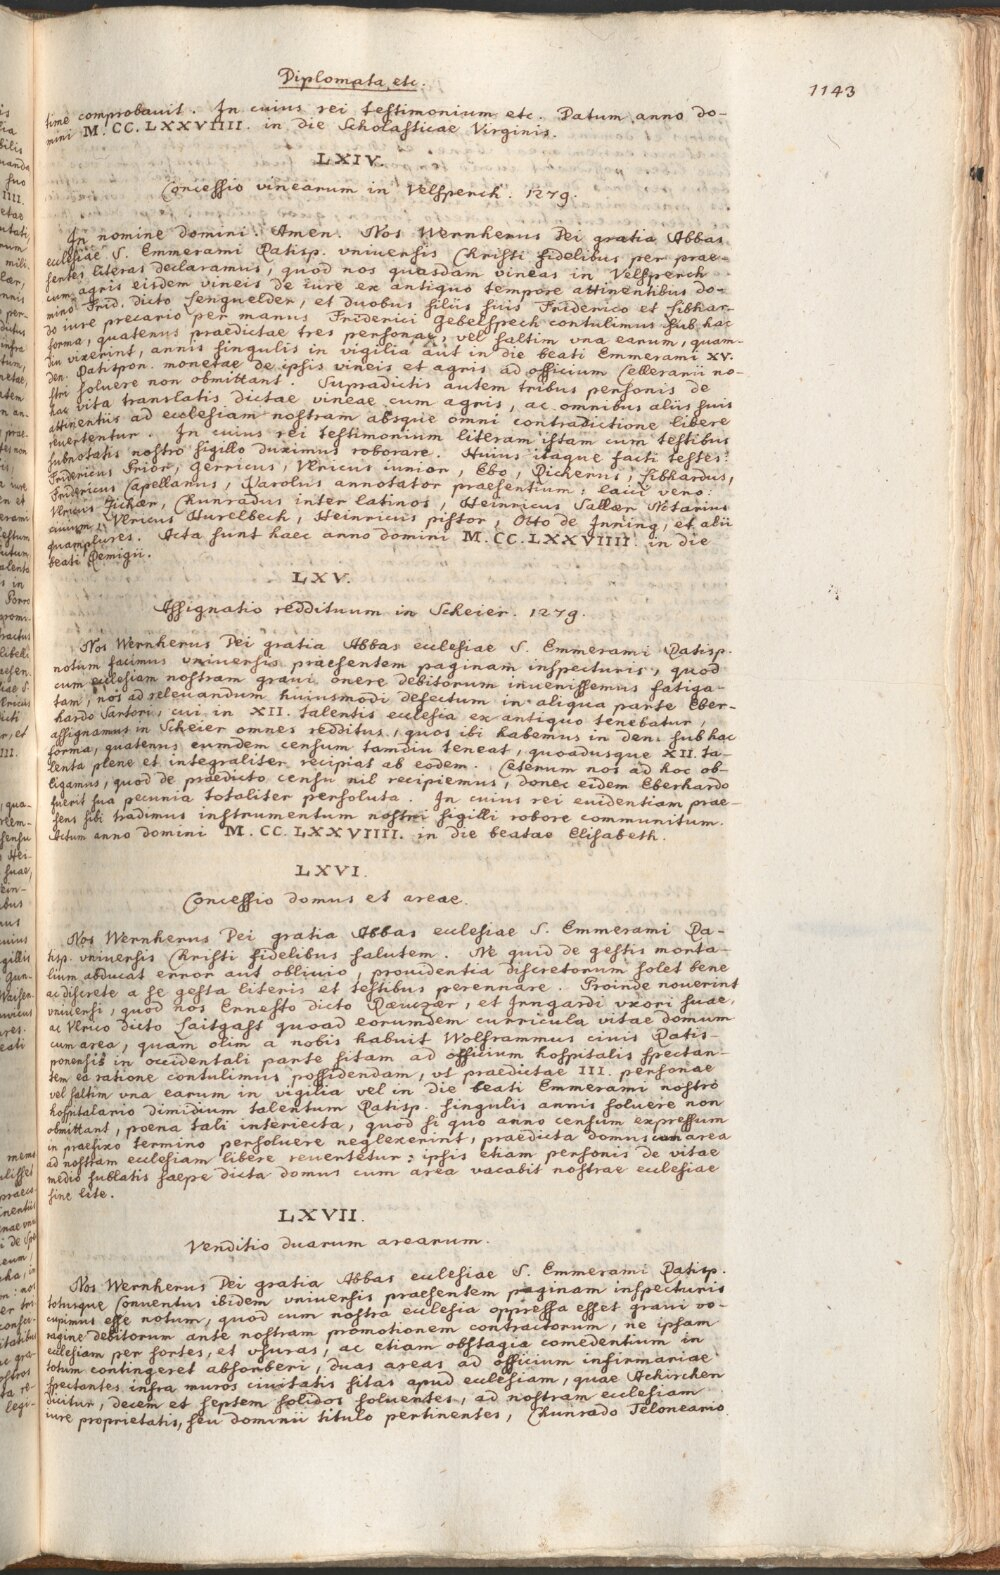 Diplomata, etc.
1143
time comprobauit. In cuius rei testimonium etc. Datum anno do-
mini M.CC.LXXVIIII. in die Scholasticae Virginis.
LXIV.
Concessio vinearum in Velsperch. 1279.
In nomine domini. Amen. Nos Wernherus Dei gratia Abbas
ecclesiae S. Emmerami Ratisp. vniuersis Christi fidelibus per prae-
sentes literas declaramus, quod nos quasdam vineas in Velsperch
cum agris eisdem vineis de iure ex antiquo tempore attinentibus do-
mino Frid. dicto Lenguelder, et duobus filiis suis Friderico et Sibhar-
do iure precario per manus Friderici Gebelspech contulimus sub hac
forma, quatenus praedictae tres personae, vel saltim vna earum, quam-
diu vixerint, annis singulis in vigilia aut in die beati Emmerami XV.
den. Ratispon. monetae de ipsis vineis et agris ad officium Celleranii no-
stri soluere non obmittant. Supradictis autem tribus personis de
hac vita translatis dictae vineae cum agris, ac omnibus aliis suis
attinentiis ad ecclesiam nostram absque omni contradictione libere
reuertentur. In cuius rei testimonium literam istam cum testibus
subnotatis nostro sigillo duximus roborare. Huius itaque facti testes:
Fridericus Prior, Gerricus, Vlricus iunior, Ebo, Rickerus, Sibhardus,
Fridericus Capellanus, Karolus annotator praesentium; laici vero:
Vlricus Zichaer, Chunradus inter latinos, Heinricus Sallaer Notarius
ciuium, Vlricus Hurelbech, Heinricus pistor, Otto de Inning, et alii
quamplures. Acta sunt haec anno domini M.CC.LXXVIIII. in die
beati Remigii.
LXV.
Assignatio reddituum in Scheier. 1279.
Nos Wernherus Dei gratia Abbas ecclesiae S. Emmerami Ratisp.
notum facimus vniuersis praesentem paginam inspecturis, quod
cum ecclesiam nostram graui onere debitorum inuenissemus fatiga-
tam, nos ad releuandum huiusmodi defectum in aliqua parte Eber-
hardo Sartori, cui in XII. talentis ecclesia ex antiquo tenebatur,
assignamus in Scheier omnes redditus, quos ibi habemus in den. sub hac
forma, quatenus eumdem censum tamdiu teneat, quoadusque XII. ta-
lenta plene et integraliter recipiat ab eodem. Ceterum nos ad hoc ob-
ligamus, quod de praedicto censu nil recipiemus, donec eidem Eberhardo
fuerit sua pecunia totaliter persoluta. In cuius rei euidentiam prae-
sens sibi tradimus instrumentum nostri sigilli robore communitum.
Actum anno domini M.CC.LXXVIIII. in die beatae Elisabeth.
LXVI.
Concessio domus et areae.
Nos Wernherus Dei gratia Abbas ecclesiae S. Emmerami Ra-
tisp. vniuersis Christi fidelibus salutem. Ne quid de gestis morta-
lium abducat error aut obliuio, prouidentia discretorum solet bene
ac discrete a se gesta literis et testibus perennare. Proinde nouerint
vniuersi, quod nos Ernesto dicto Raeuzaer, et Irngardi vxori suae,
ac Vlrico dicto Saitgast quoad eorumdem curricula vitae domum
cum area, quam olim a nobis habuit Wolframmus ciuis Ratis-
ponensis in occidentali parte sitam ad officium hospitalis spectan-
tem ea ratione contulimus possidendam, vt praedictae III. personae
vel saltim vna earum in vigilia vel in die beati Emmerami nostro
hospitalario dimidium talentum Ratisp. singulis annis soluere non
obmittant, poena tali interiecta, quod si quo anno censum expressum
in praefixo termino persoluere neglexerint, praedicta domus cum area
ad nostram ecclesiam libere reuertetur: ipsis etiam personis de vitae
medio sublatis saepe dicta domus cum area vacabit nostrae ecclesiae
sine lite.
LXVII.
Venditio duarum arearum.
Nos Wernherus Dei gratia Abbas ecclesiae S. Emmerami Ratisp.
totusque Conuentus ibidem vniuersis praesentem paginam inspecturis
cupimus esse notum, quod cum nostra ecclesia oppressa esset graui vo-
ragine debitorum ante nostram promotionem contractorum, ne ipsam
ecclesiam per sortes, et vsuras, ac etiam obstagia comedentium in
totum contingeret absorberi, duas areas ad officium infirmariae
spectantes infra muros ciuitatis sitas apud ecclesiam, quae Ackirchen
dicitur, decem et septem solidos soluentes, ad nostram ecclesiam
iure proprietatis, seu dominii titulo pertinentes, Chunrado Teloneario